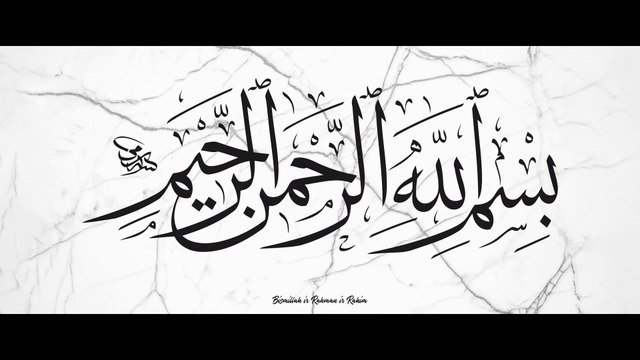 بِسْمِ ٱللَّهِ ٱلرَّحْمَٰنِ ٱلرَّحِيمِ
Bismillah ir Rahman ir Rahim